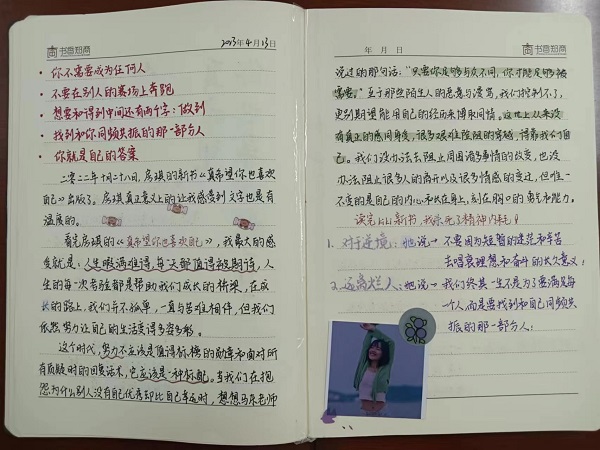 书香短商
2023年4月13日
• 你不需要成为任何人
• 不要在别人的赛场上奔跑
• 想要和得到中间还有两个字：做到
• 找到和你同频共振的那一部分人
• 你就是自己的答案
二〇二二年十月二十八日，房琪的新书《真希望你也喜欢
自己》出版了。房琪真正意义上的让我感受到文字也是有
温度的。
看完房琪的《真希望你也喜欢自己》，我最大的感
度就是：人生海海难得，每天都值得被期待，人
生的每一次考验都是帮助我们成长的桥梁，在成
长的路上，我们并不孤单，一直与苦难相伴，但我们
依然努力让自己的生活变得多姿多彩。
这个时代，努力不应该是值得标榜的勋章和面对所
有质疑时的回复话术，它应该是一种标配。当我们在抱
怨为什么别人没有自己优秀却比自己幸运时，想想马东老师
年 月 日
书香短商
说过的那句话："只要你足够与众不同，你才能足够被
需要。"至于那些陌生人的恶意与谩骂，我们控制不了，
更别期望能用自己的经历来博取同情。这世上从来没
有真正的感同身受，很多艰难险阻的穿越，得靠我们自
己。我们没办法去阻止周围诸多事情的改变，也没
办法阻止很多人的离开以及很多情感的变迁，但唯一
不变的是自己的内心和执在身，刻在胸口的勇气和能力。
读完这新书，我杀死了精神内耗！
1. 对于逆境：她说→不要因为短暂的迷茫和辛苦
去唱衰理想和奋斗的长久意义；
2. 远离烂人：她说→我们终其一生不是为了要满足每
个人而是要找到和自己同频共
振的那一部分人；